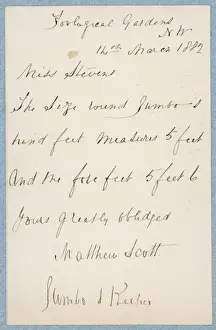 Zoological Gardens
N.W
14th March 1882
Miss Stevens
The Size round Jumbo s
hind feet measures 5 feet
and the fore feet 5 feet 6
yours greatly oblidged
Matthew Scott
Jumbo s Keeper